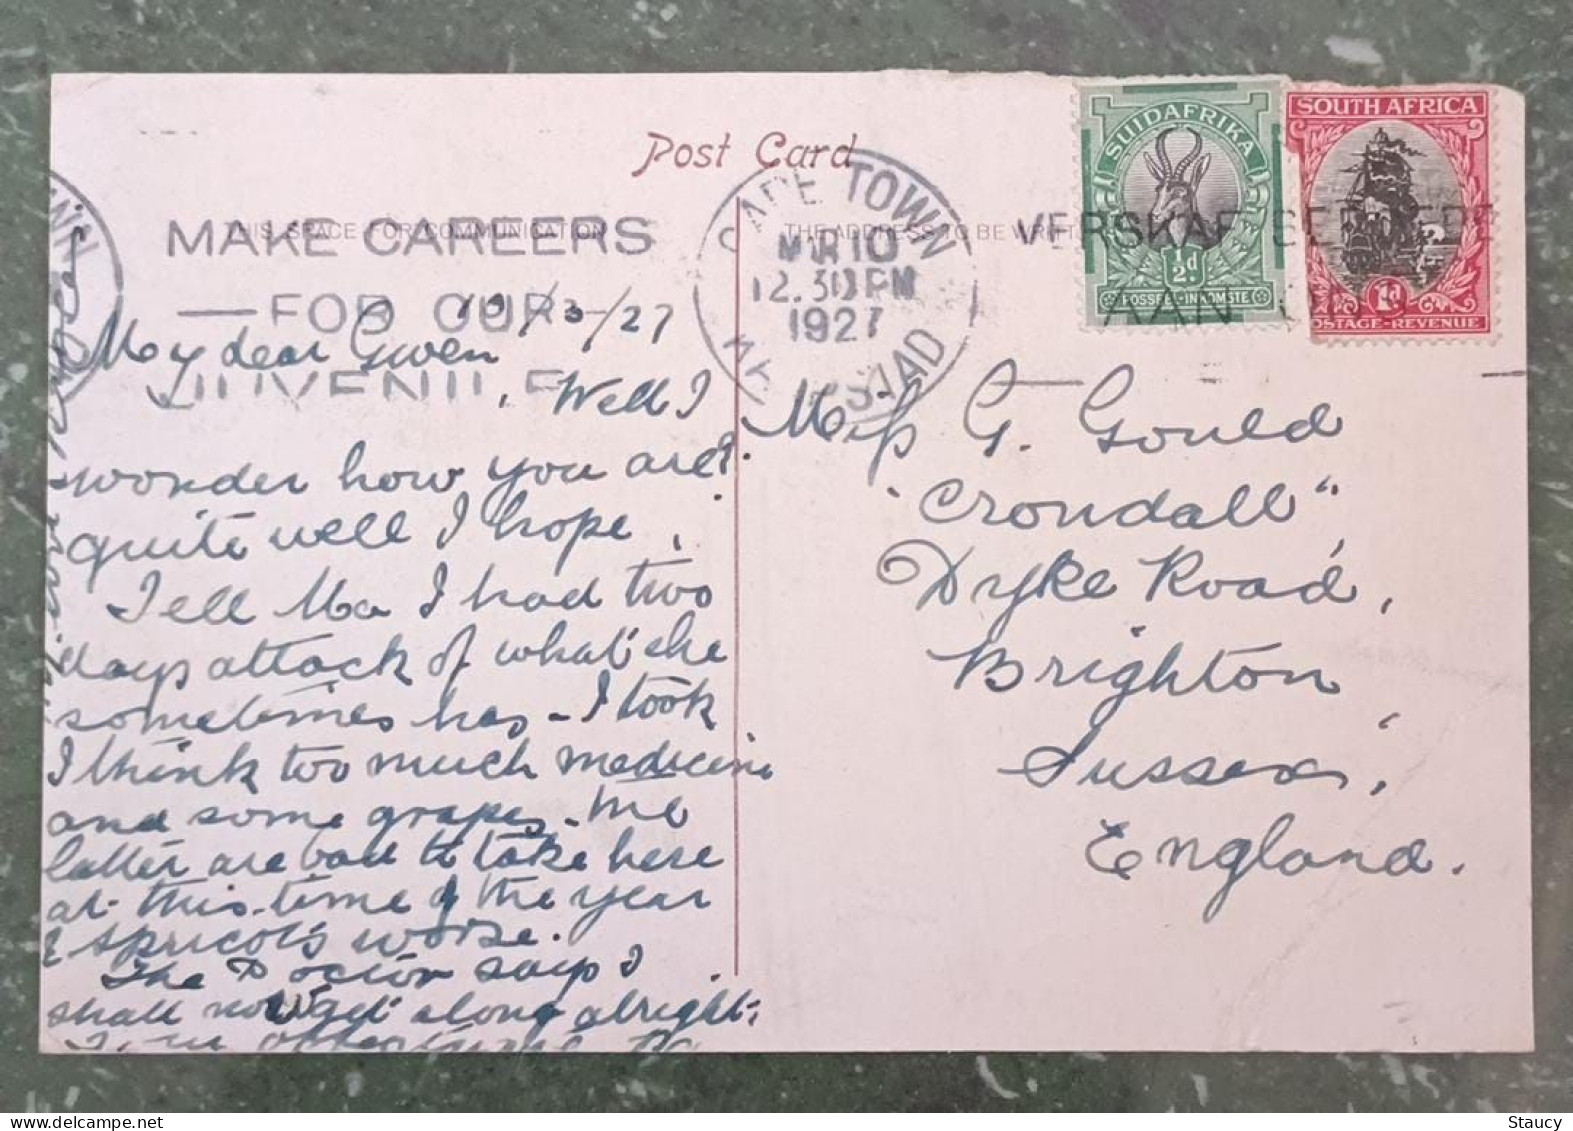 Post Card
THIS SPACE FOR COMMUNICATION
THE ADDRESS TO BE WRIT
MAKE CAREERS
FOR OUR
JUVENILE
CAPE TOWN
MAR 10
12.30 PM
1927
KAAPSTAD
VERSKAF
AAN
SUIDAFRIKA
½d
POSSEEL-INKOMSTE
SOUTH AFRICA
1d
POSTAGE-REVENUE
10/3/27
My dear Gwen
Well I
wonder how you are?
quite well I hope.
Tell Ma I had two
days attack of what she
sometimes has - I took
I think too much medicine
and some grapes - the
latter are bad to take here
at this time of the year
& apricots worse.
The Doctor says I
shall now get along alright.
Miss G. Gould
"Crondall",
Dyke Road,
Brighton,
Sussex,
England.
Staucy